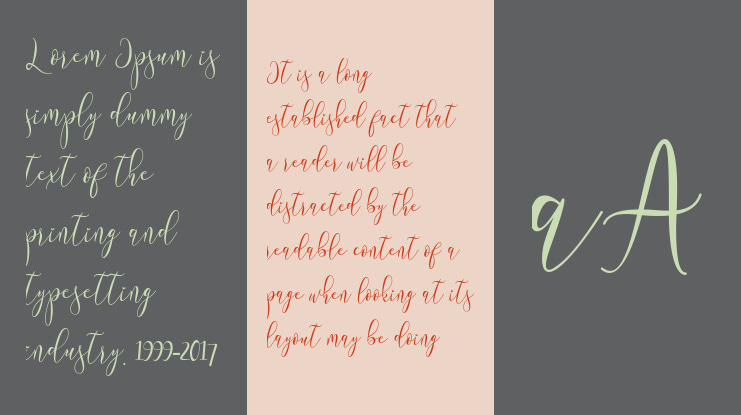 Lorem Ipsum is
simply dummy
text of the
printing and
typesetting
industry. 1999-2017
It is a long
established fact that
a reader will be
distracted by the
readable content of a
page when looking at its
layout may be doing
a A